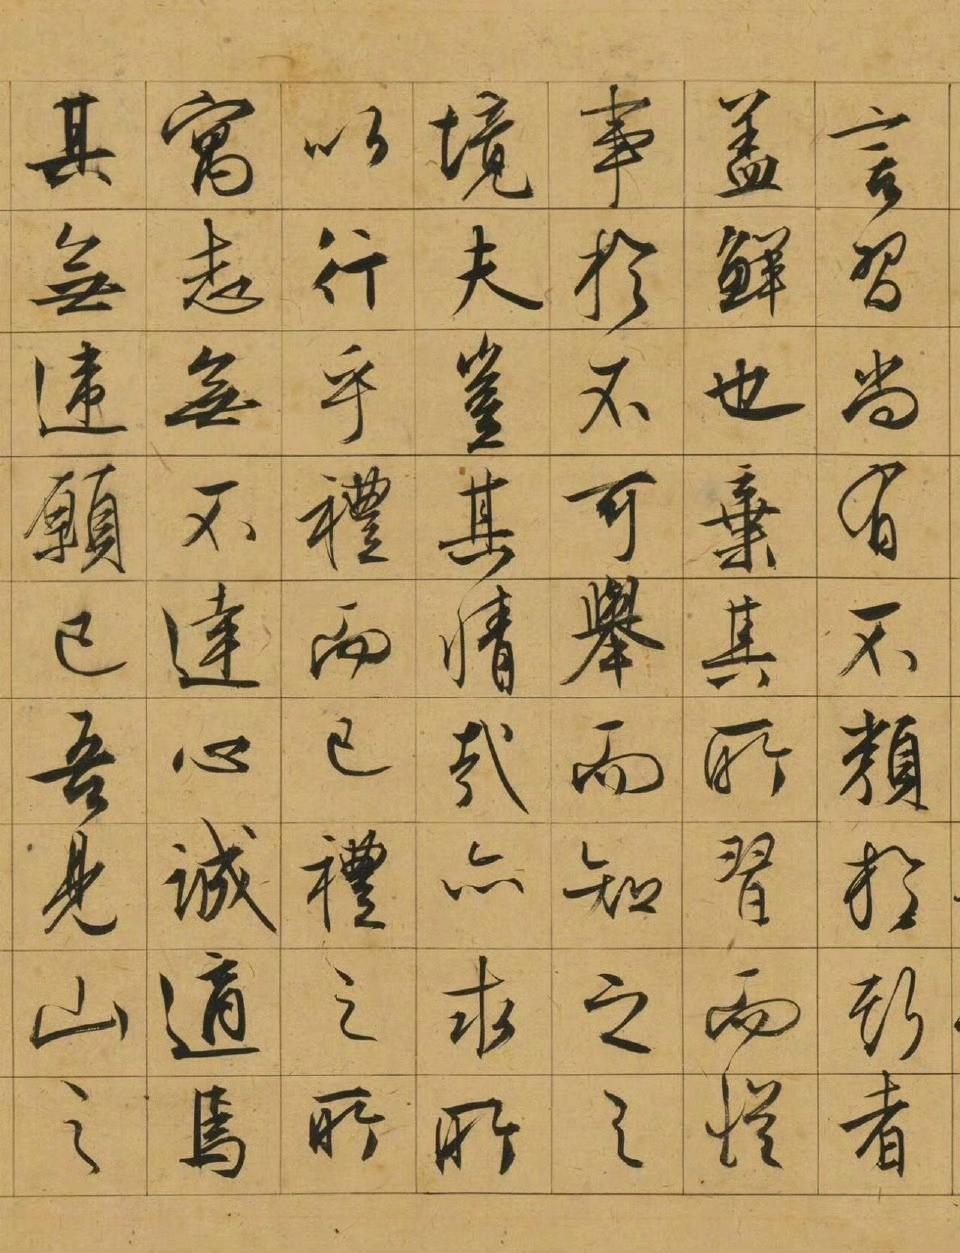 言習尚有不類於斯者
盖鮮也棄其所習而從
事於不可舉而知之之
境夫豈其情哉亦求所
以行乎禮而已禮之所
寓起無不達心誠適焉
其無違願已吾見山之